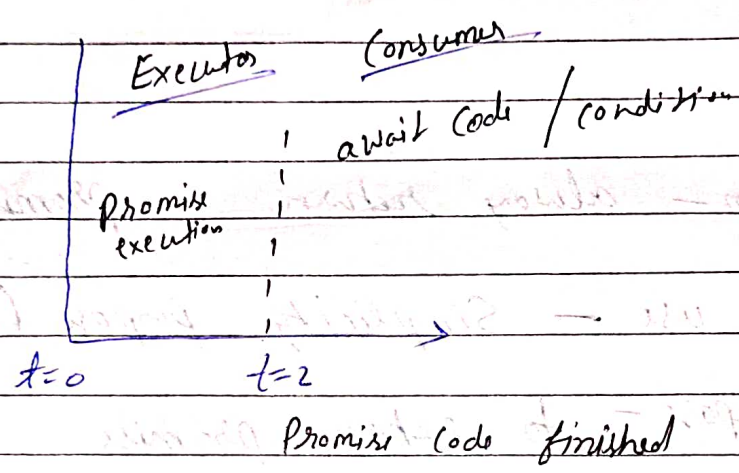 Executor Consumer
await Code / Condition
Promise
execution
t=0 t=2
Promise Code finished